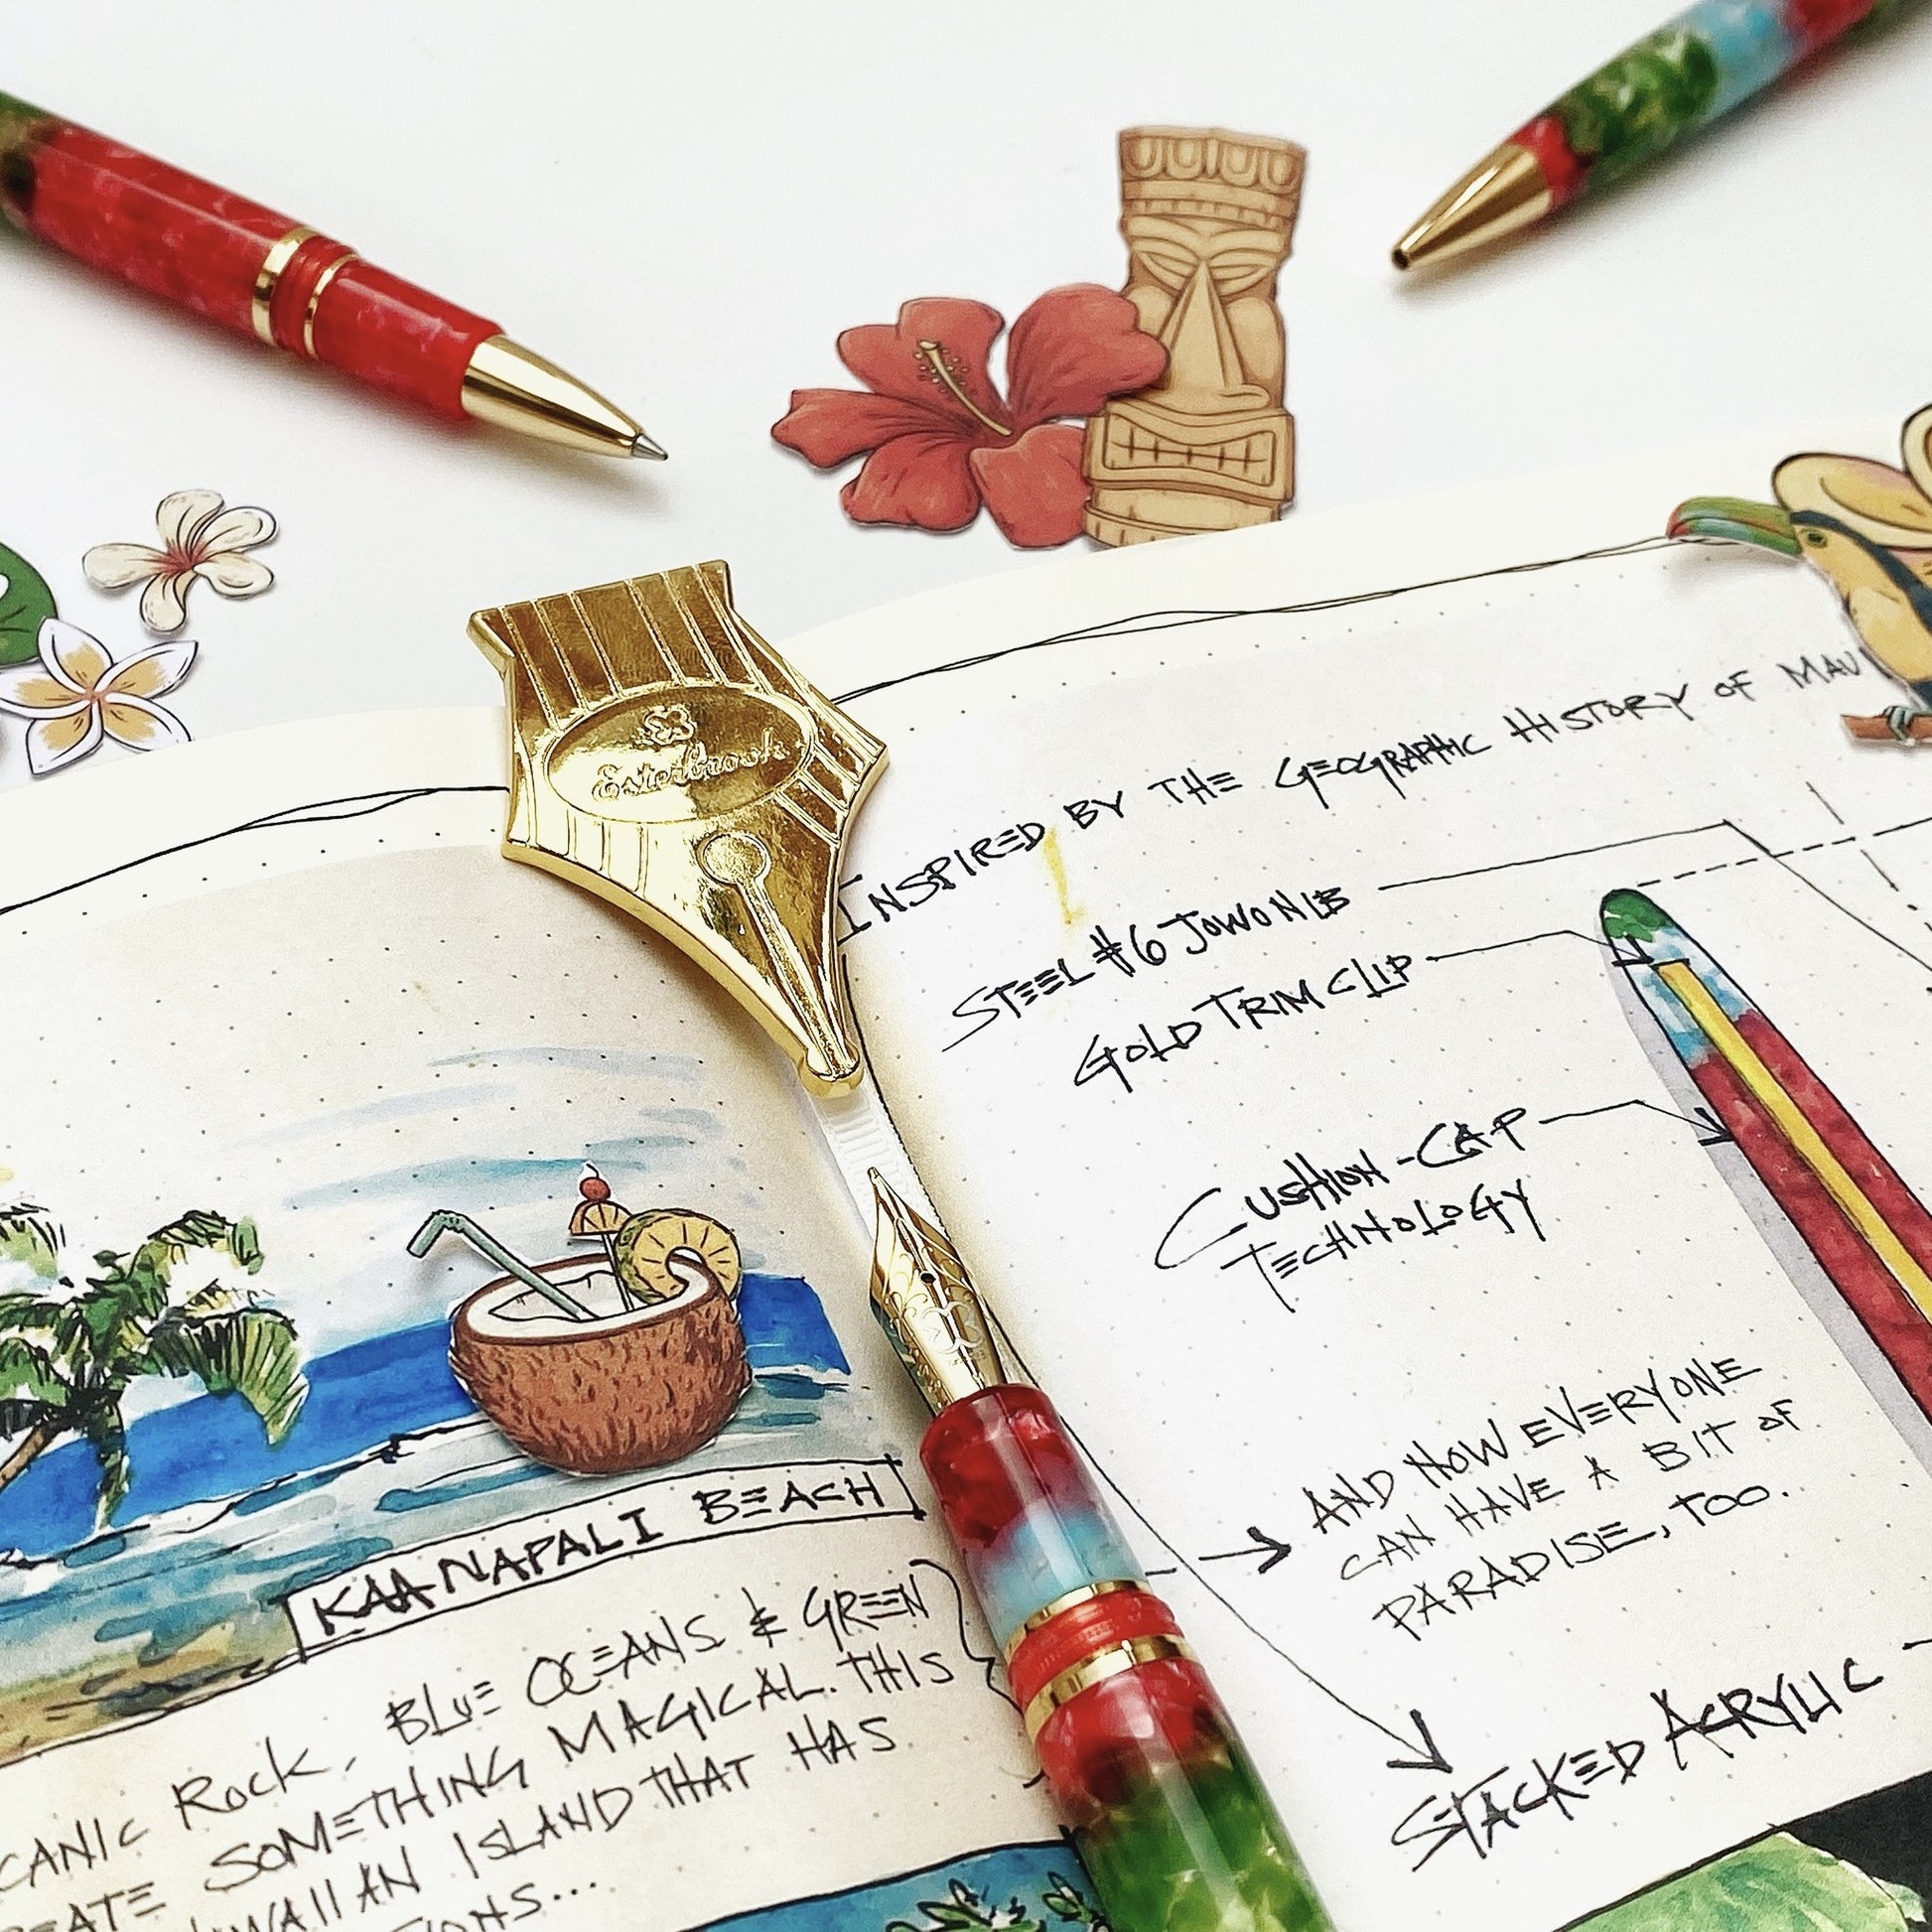 Esterbrook
KAANAPALI BEACH
ROCK, BLUE OCEANS & GREEN
SOMETHING MAGICAL. THIS
ISLAND THAT HAS
INSPIRED BY THE GEOGRAPHIC HISTORY OF MAUI
STEEL #6 JOWO NIB
GOLD TRIM CLIP
CUSHION-CAP
TECHNOLOGY
AND NOW EVERYONE
CAN HAVE A BIT OF
PARADISE, TOO.
STACKED ACRYLIC